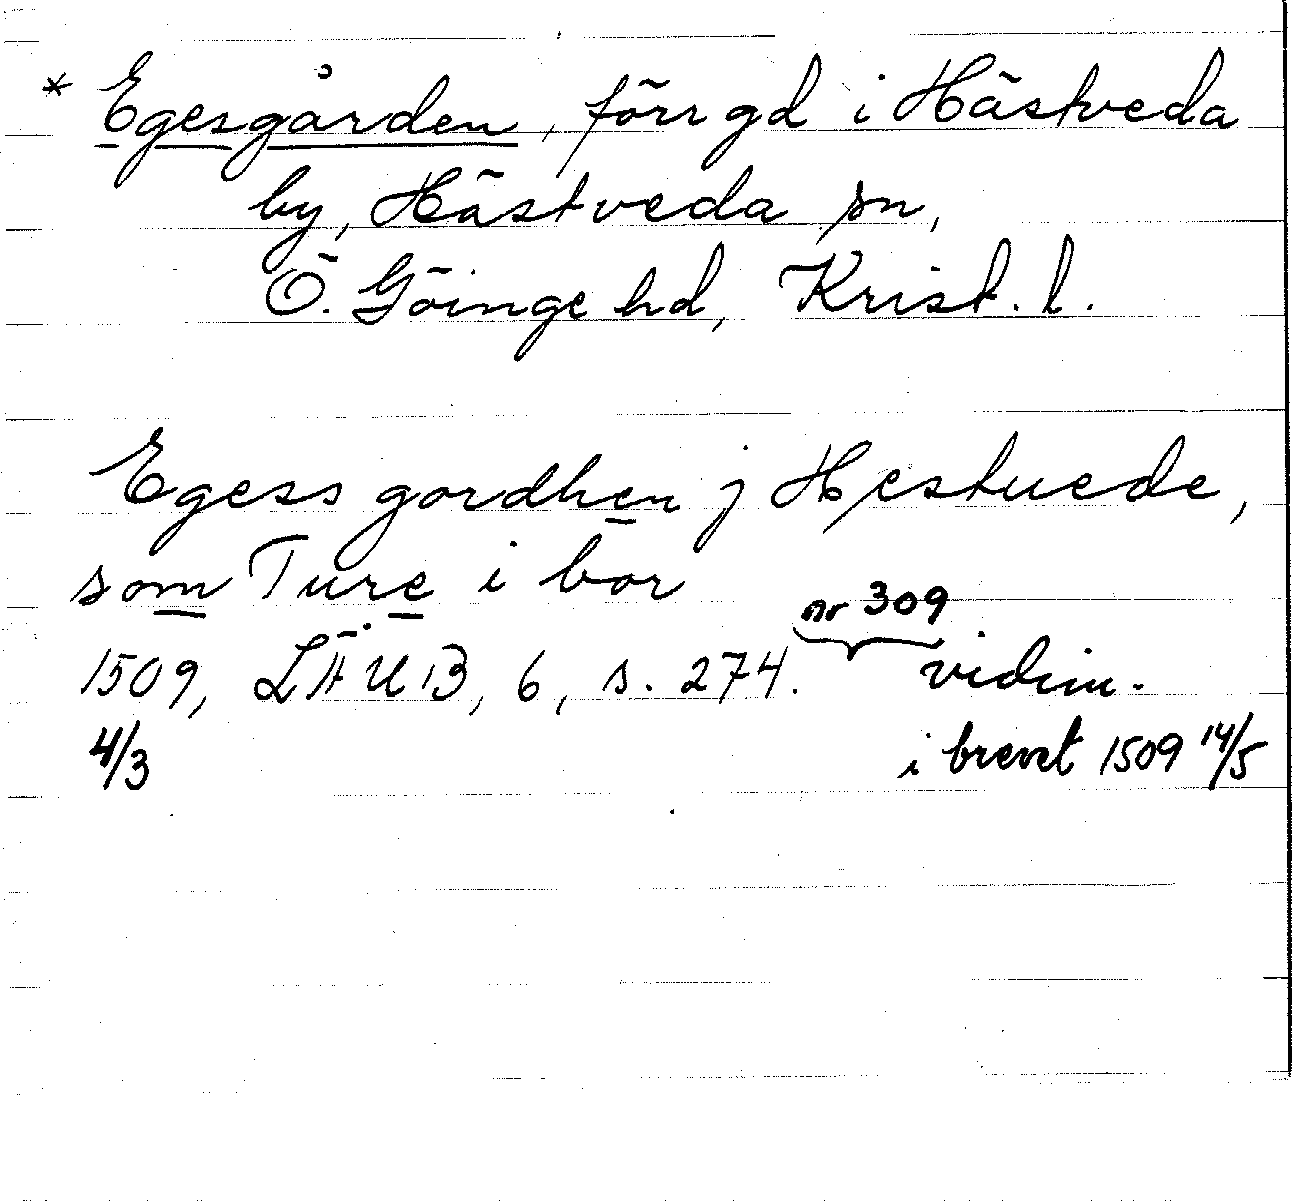 * Egesgården, förr gd i Hästveda
by, Hästveda sn,
Ö. Göinge hd, Krist. l.
Egess gordhen j Hestuede,
som Ture i bor
nr 309
1509, LÄUB, 6, s. 274. vidim.
4/3 i brevet 1509 14/5